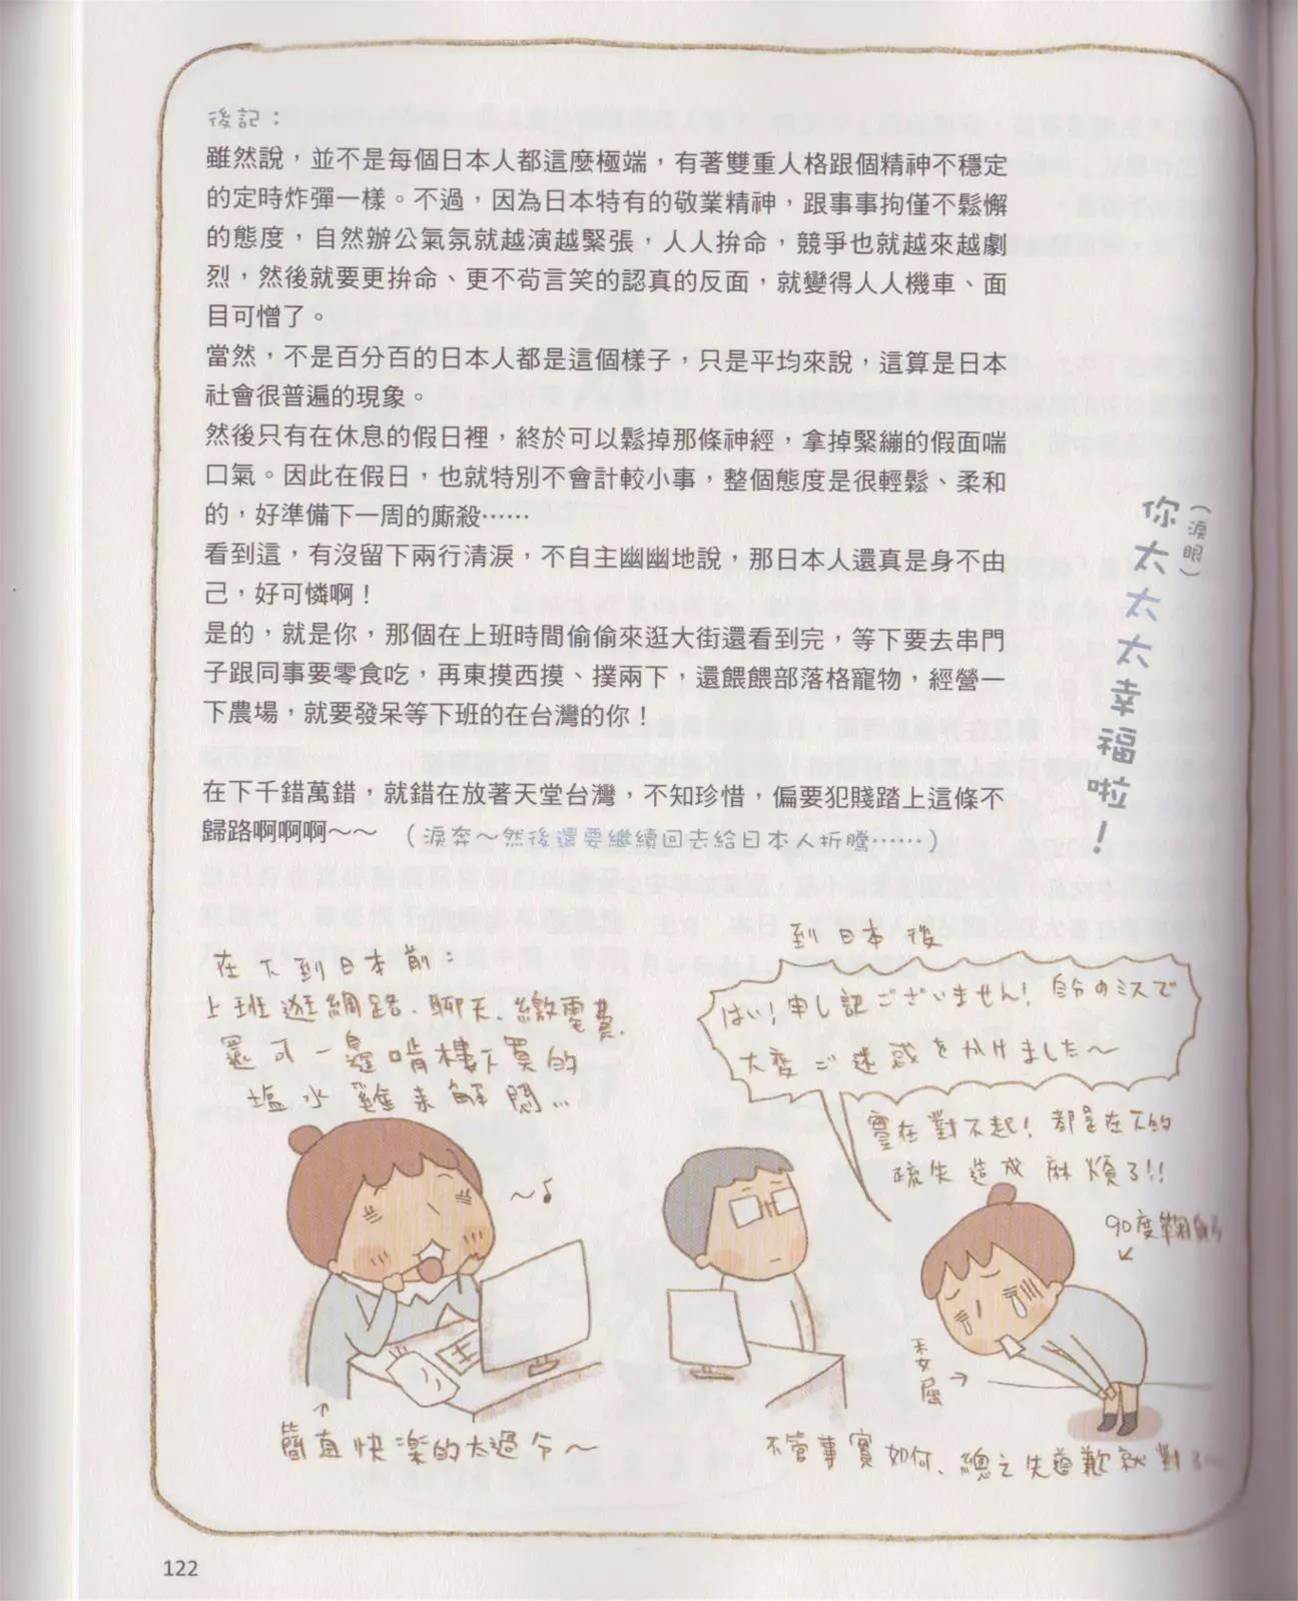 後記：
雖然說，並不是每個日本人都這麼極端，有著雙重人格跟個精神不穩定
的定時炸彈一樣。不過，因為日本特有的敬業精神，跟事事拘僅不鬆懈
的態度，自然辦公氣氛就越演越緊張，人人拚命，競爭也就越來越劇
烈，然後就要更拚命、更不苟言笑的認真的反面，就變得人人機車、面
目可憎了。
當然，不是百分百的日本人都是這個樣子，只是平均來說，這算是日本
社會很普遍的現象。
然後只有在休息的假日裡，終於可以鬆掉那條神經，拿掉緊繃的假面喘
口氣。因此在假日，也就特別不會計較小事，整個態度是很輕鬆、柔和
的，好準備下一周的廝殺……
看到這，有沒留下兩行清淚，不自主幽幽地說，那日本人還真是身不由
己，好可憐啊！
是的，就是你，那個在上班時間偷偷來逛大街還看到完，等下要去串門
子跟同事要零食吃，再東摸西摸、撲兩下，還餵餵部落格寵物，經營一
下農場，就要發呆等下班的在台灣的你！
（淚眼）
你太太太幸福啦！
在下千錯萬錯，就錯在放著天堂台灣，不知珍惜，偏要犯賤踏上這條不
歸路啊啊啊～～（淚奔～然後還要繼續回去給日本人折騰……）
在下到日本前：
上班逛網路、聊天、繳電費、
還可一邊啃樓下買的
塩水雞來解悶…
～♪
簡直快樂的太過分～
到日本後
はい！申し訳ございません！自分のミスで
大変ご迷惑をかけました～
實在對不起！都是在下的
疏失造成麻煩了!!
90度鞠躬
委屈
不管事實如何、總之先道歉就對了～
122